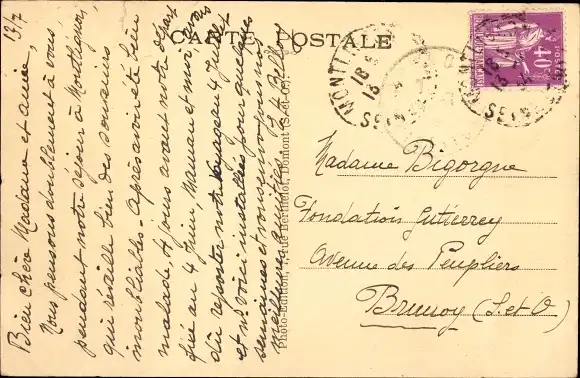 CARTE POSTALE
13/7
Bien chère Madame et amie,
Nous pensons doublement à vous
pendant notre séjour à Montlignon,
qui réveille bien des souvenirs
inoubliables. Après avoir été bien
malade, 4 jours avant notre départ
fixé au 4 Juin, Maman et moi, avons
dû reporter notre voyage au 4 Juillet
et ns voici installées pour quelques
semaines et vous envoyons nos
meilleures amitiés. J. de Belly
Photo-Edition, rue Berthelot, Domont (S.-et-O.)
40c
MONTLIGNON
18
13
SEINE
MONTLIGNON
18
13
SEINE
Madame Bigorgne
Fondation Gutierrey
Avenue des Peupliers
Brunoy (S. et O)